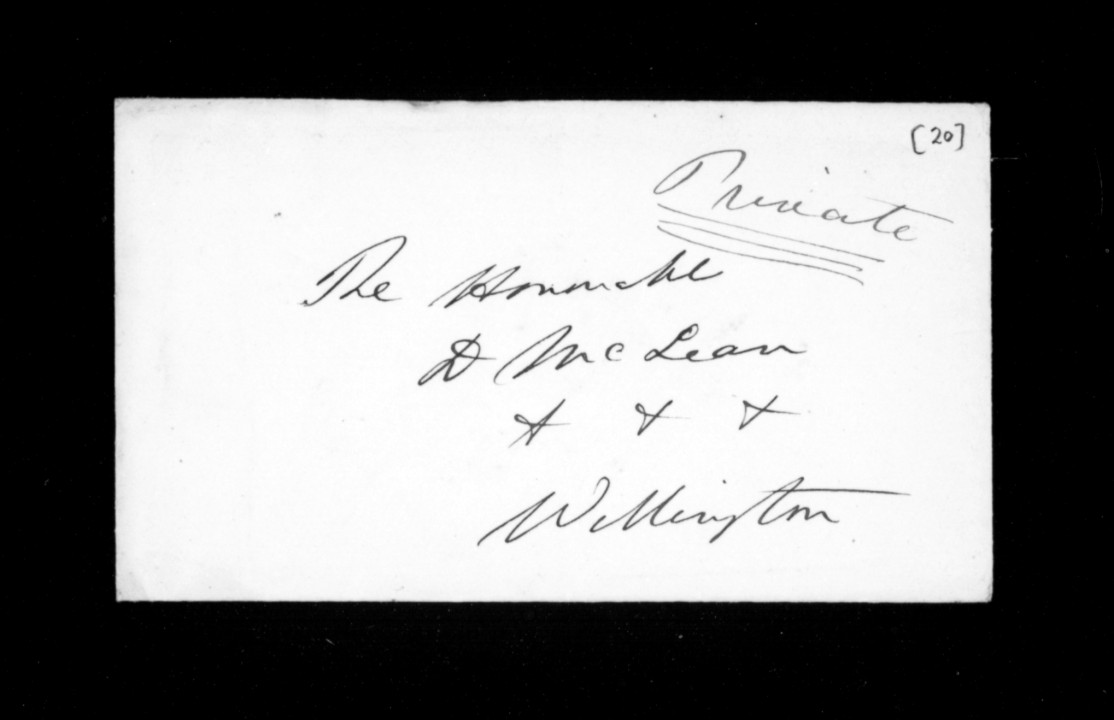 [20]
Private
The Honorable
D McLean
+ + +
Wellington